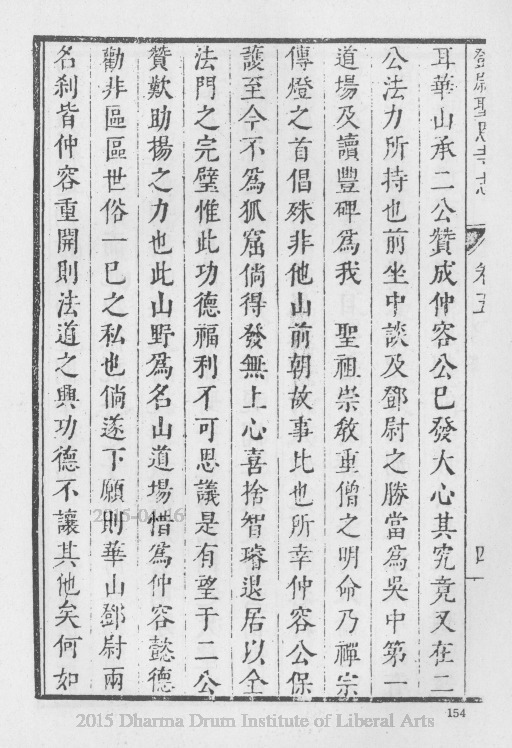 鄧尉聖恩寺志 卷五 四
耳華山承二公贊成仲容公已發大心其究竟又在二
公法力所持也前坐中談及鄧尉之勝當爲吳中第一
道場及讀豐碑爲我 聖祖崇敬重僧之明命乃禪宗
傳燈之首倡殊非他山前朝故事比也所幸仲容公保
護至今不爲狐窟倘得發無上心喜捨智璿退居以全
法門之完璧惟此功德福利不可思議是有望于二公
贊歎助揚之力也此山野爲名山道場惜爲仲容懿德
勸非區區世俗一巳之私也倘遂下願則華山鄧尉兩
名刹皆仲容重開則法道之興功德不讓其他矣何如
154
2015-04-16
2015 Dharma Drum Institute of Liberal Arts